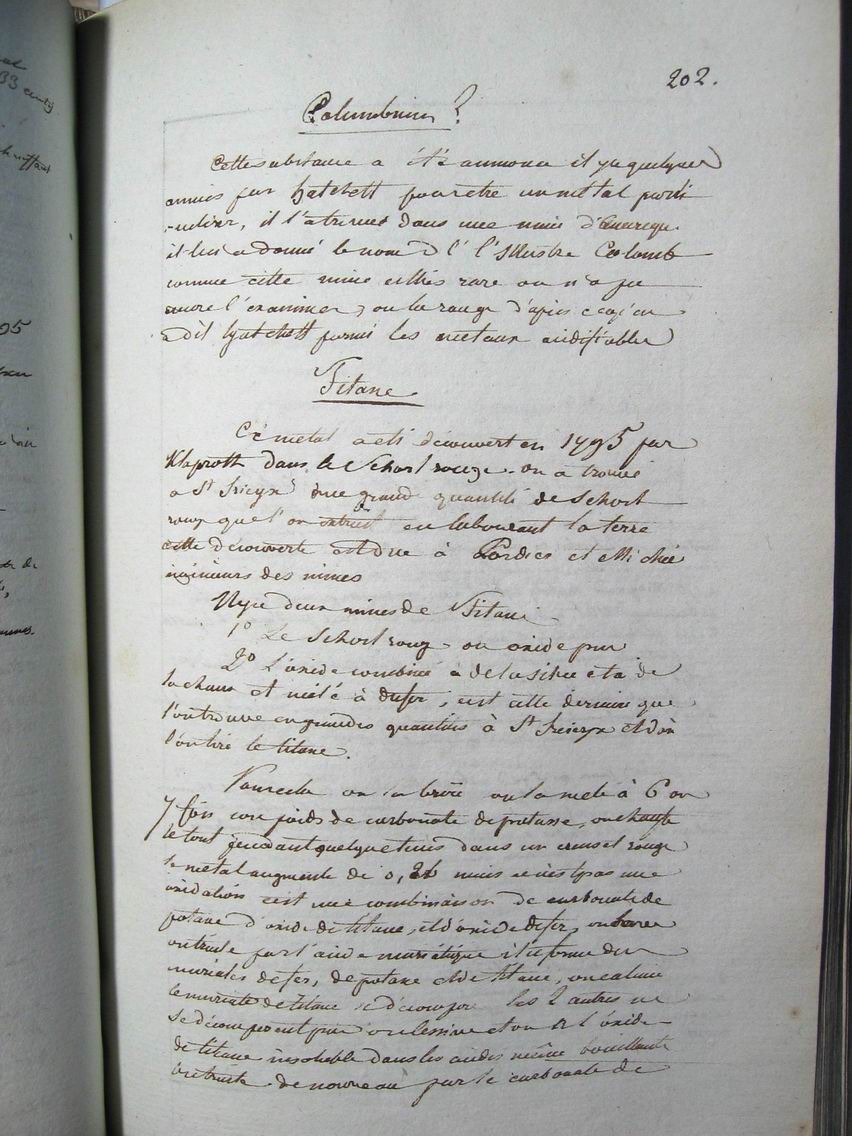 202.
Columbium ?
Cette substance a été annoncée il y a quelques
années par hatchett pour être un métal parti
-culier, il l'a trouvé dans une mine d'amerique.
il lui a donné le nom de l'illustre Colomb
comme cette mine est très rare on n'a pu
encore l'examiner, on la range d'après ce qu'en
a dit hatchett parmi les metaux acidifiables
Titane
Ce métal a été découvert en 1795 par
Klaproth dans le Schorl rouge. on a trouvé
a St Irieyx une grande quantité de Schorl
rouge que l'on extrait en labourant la terre
cette découverte est due à Cordier et
ingénieurs des mines
Il y a deux mines de Titane
1° Le Schorl rouge ou oxide pur
2° L'oxide combiné à de la silice et à de
la chaux et mêlé à du fer, c'est cette derniere que
l'on trouve en grandes quantités à St Irieyx et d'où
l'on tire le titane.
Pour cela on la broie on la mele à 6 ou
7 fois son poids de carbonate de potasse, on chauffe
le tout pendant quelque tems dans un creuset rouge
le metal augmente de 0, mais ce n'est pas une
oxidation c'est une combinaison de carbonate de
potasse d'oxide de titane, et d'oxide de fer, on
on traite par l'acide muriatique il se forme des
muriates de fer, de potasse et de titane, on calcine
le muriate de titane se décompose les 2 autres ne
se décomposent pas on lessive et on a l'oxide
de titane insoluble dans les acides même bouillants
on traite de nouveau par le carbonate de